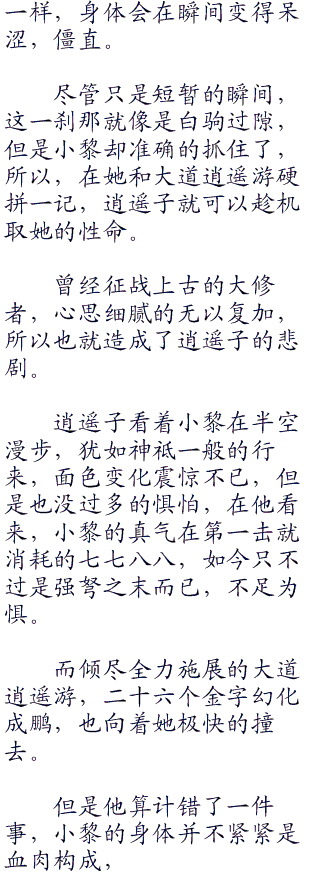 一样，身体会在瞬间变得呆
涩，僵直。
尽管只是短暂的瞬间，
这一刹那就像是白驹过隙，
但是小黎却准确的抓住了，
所以，在她和大道逍遥游硬
拼一记，逍遥子就可以趁机
取她的性命。
曾经征战上古的大修
者，心思细腻的无以复加，
所以也就造成了逍遥子的悲
剧。
逍遥子看着小黎在半空
漫步，犹如神祇一般的行
来，面色变化震惊不已，但
是也没过多的惧怕，在他看
来，小黎的真气在第一击就
消耗的七七八八，如今只不
过是强弩之末而已，不足为
惧。
而倾尽全力施展的大道
逍遥游，二十六个金字幻化
成鹏，也向着她极快的撞
去。
但是他算计错了一件
事，小黎的身体并不紧紧是
血肉构成，